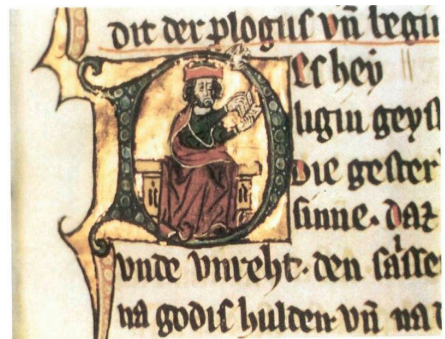 dit der plogus vn̄ begin
Des hey
ligin geyst
Die gester
sinne. daz
vnde vnreht. den sasse
na godis hulden. vn̄ na